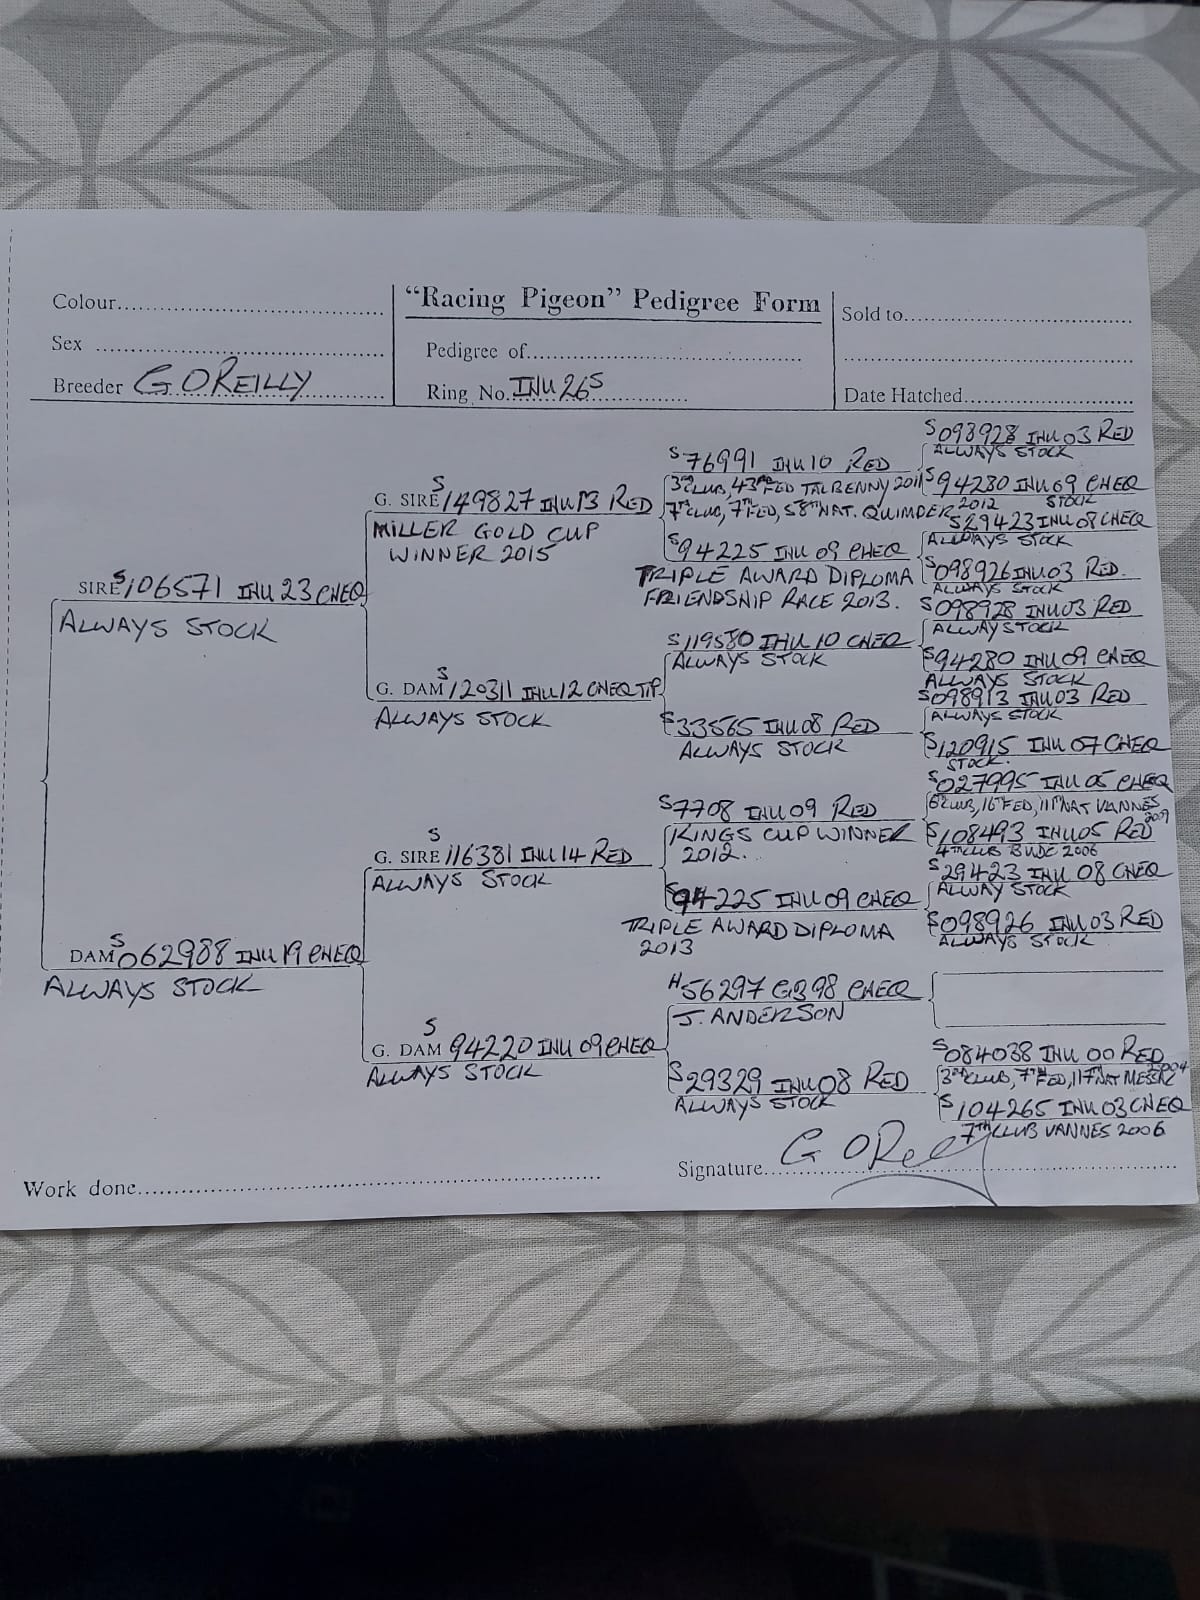 "Racing Pigeon" Pedigree Form
Colour
Sex
Breeder G O REILLY
Pedigree of
Ring No. INU 26 S
Sold to
Date Hatched
SIRE S 106571 INU 23 CHEQ
ALWAYS STOCK
DAM S 062988 INU 19 CHEQ
ALWAYS STOCK
G. SIRE S 149827 INU 13 RED
MILLER GOLD CUP
WINNER 2015
G. DAM S 120311 INU 12 CHEQ TIP
ALWAYS STOCK
G. SIRE S 116381 INU 14 RED
ALWAYS STOCK
G. DAM S 94220 INU 09 CHEQ
ALWAYS STOCK
S 76991 INU 10 RED
3RD CLUB, 43RD FED TALBENNY 2011
7TH CLUB, 7TH FED, 58TH NAT. QUIMPER 2012
S 94225 INU 09 CHEQ
TRIPLE AWARD DIPLOMA
FRIENDSHIP RACE 2013.
S 119580 INU 10 CHEQ
ALWAYS STOCK
S 33565 INU 08 RED
ALWAYS STOCK
S 7708 INU 09 RED
KINGS CUP WINNER
2012.
S 94225 INU 09 CHEQ
TRIPLE AWARD DIPLOMA
2013
H 56297 GB 98 CHEQ
J. ANDERSON
S 29329 INU 08 RED
ALWAYS STOCK
S 098928 INU 03 RED
ALWAYS STOCK
S 94280 INU 09 CHEQ
STOCK
S 29423 INU 08 CHEQ
ALWAYS STOCK
S 098926 INU 03 RED.
ALWAYS STOCK
S 098928 INU 03 RED
ALWAY STOCK
S 94280 INU 09 CHEQ
ALWAYS STOCK
S 098913 INU 03 RED
ALWAYS STOCK
S 120915 INU 07 CHEQ
STOCK.
S 027995 INU 05 CHEQ
6 CLUB, 16TH FED, 111TH NAT VANNES 2009
S 108493 INU 05 RED
4TH CLUB BUDE 2006
S 29423 INU 08 CHEQ
ALWAY STOCK
S 098926 INU 03 RED
ALWAYS STOCK
S 084038 INU 00 RED
3RD CLUB, 7TH FED, 117 NAT
S 104265 INU 03 CHEQ
7TH CLUB VANNES 2006
Work done
Signature G OReilly